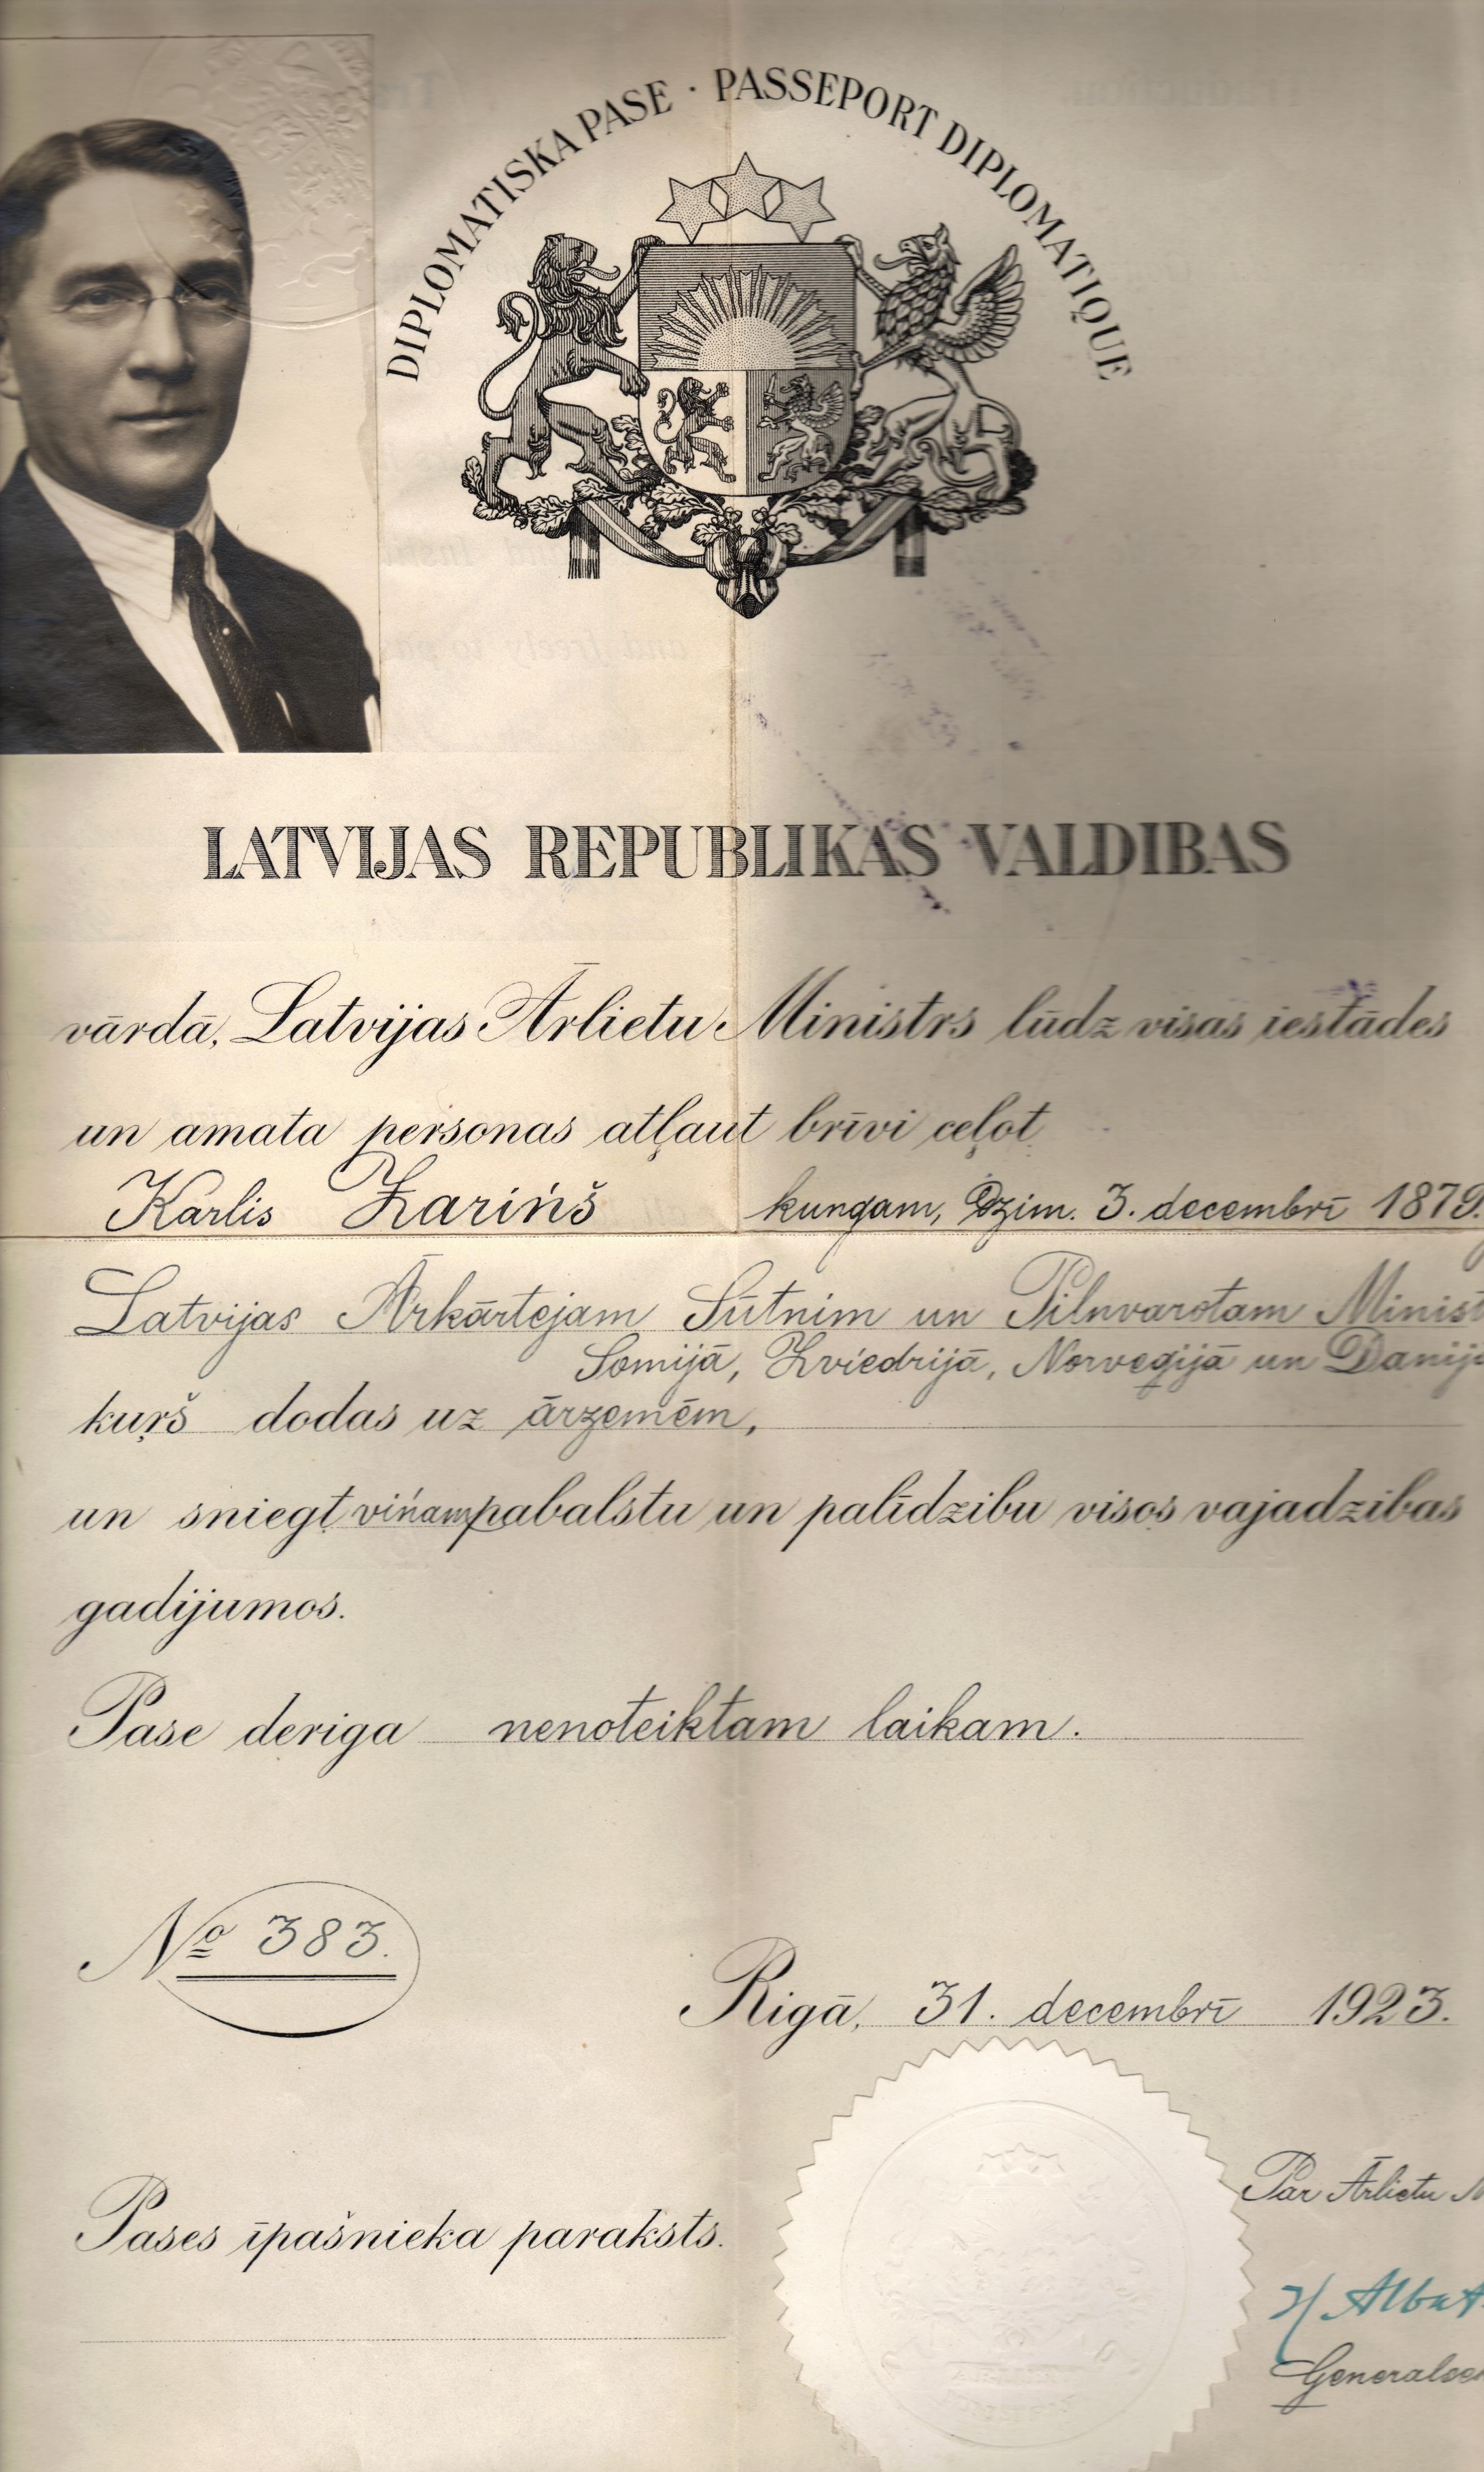 DIPLOMATISKA PASE · PASSEPORT DIPLOMATIQUE
LATVIJAS REPUBLIKAS VALDIBAS
vārdā, Latvijas Ārlietu Ministrs lūdz visas iestādes
un amata personas atļaut brīvi ceļot
Karlis Zariņš kungam, Dzim. 3. decembrī 1879.
Latvijas Ārkārtejam Sūtnim un Pilnvarotam
Somijā, Zviedrijā, Norvegijā un
kuŗš dodas uz ārzemēm,
un sniegt viņam pabalstu un palīdzibu visos vajadzibas
gadijumos.
Pase deriga nenoteiktam laikam.
№ 383.
Rigā, 31. decembrī 1923.
Par Ārlietu
Pases īpašnieka paraksts.